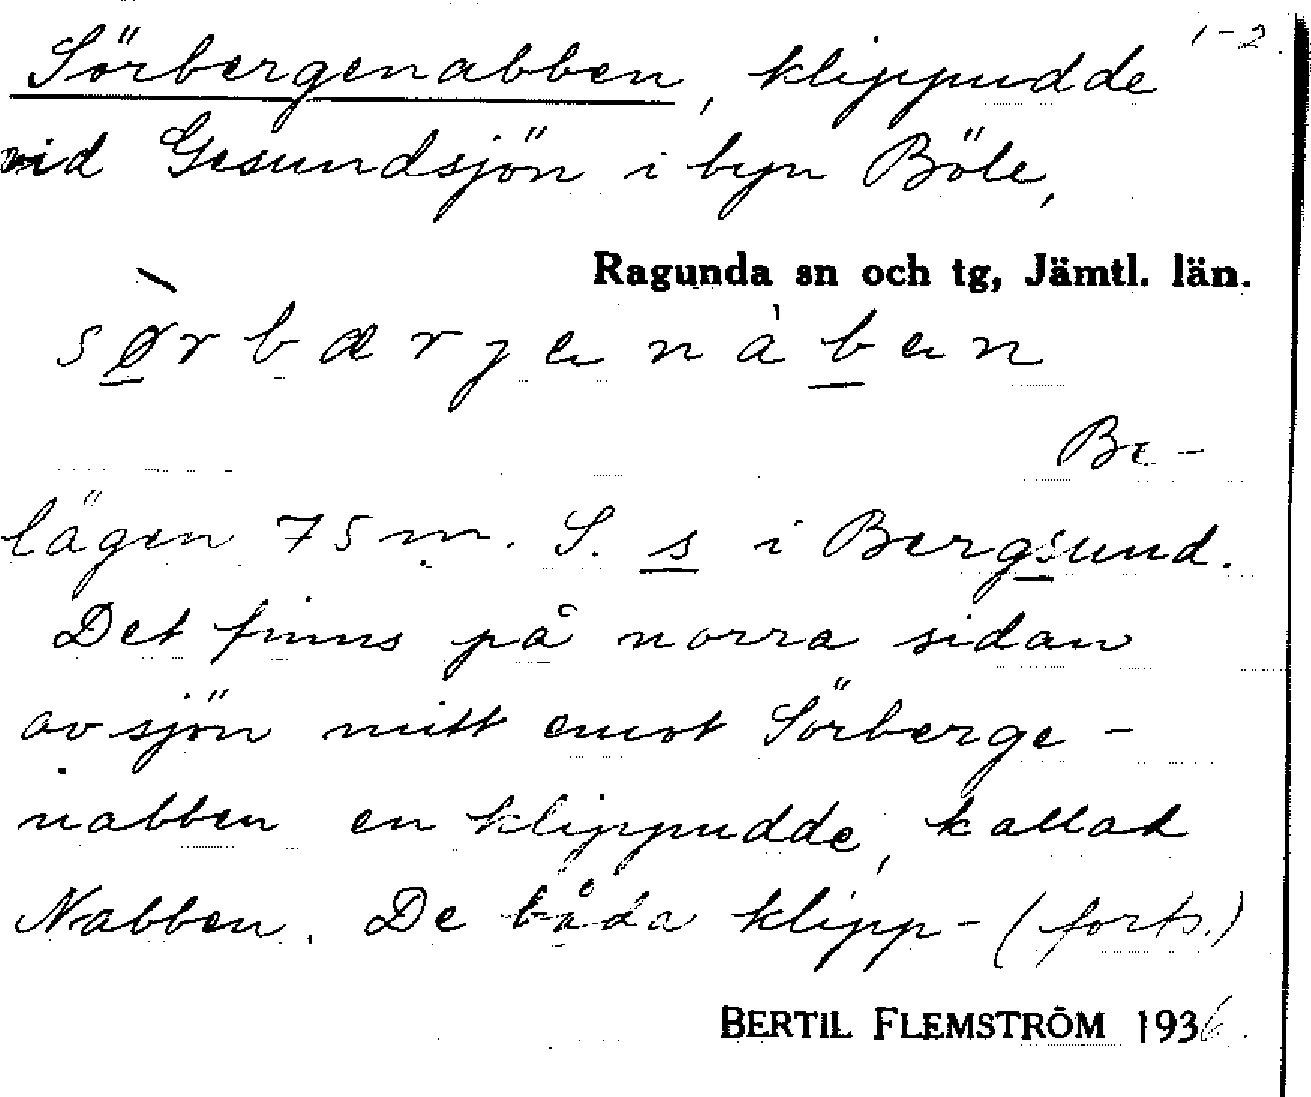 1-2.
Sörbergenabben, klippudde
vid Gesundsjön i byn Böle,
Ragunda sn och tg, Jämtl. län.
sø̀rbærjenàben
Be-
lägen 75 m. S. s i Bergsund.
Det finns på norra sidan
av sjön mitt emot Sörberge-
nabben en klippudde, kallad
Nabben. De båda klipp- (forts.)
BERTIL FLEMSTRÖM 1936.